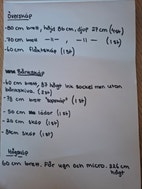 Överskåp
-80 cm brett, höjd 86 cm, djup 37 cm (4st)
-70 cm brett -11- , -11- (1st)
-60 cm fläktskåp (1st)
Bänkskåp
-60 cm brett, 87 högt ink sockel men utan
bänkskiva. (2st)
-78 cm brett (1st)
-80 cm lådor (1st)
-30 cm skåp (1st)
-80cm skåp (1st)
Högskåp
60 cm brett. För ugn och micro. 226 cm
högt